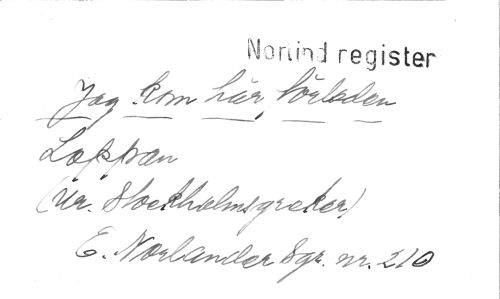 Norlind register
Jag kom här förleden
Loppan
(Ur. Stockholmsgreker)
E. Norlander Sgr. nr. 210